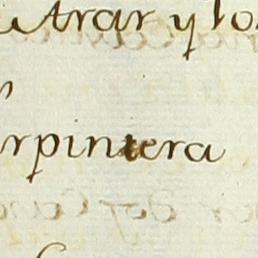 Arar y lo
rpintera